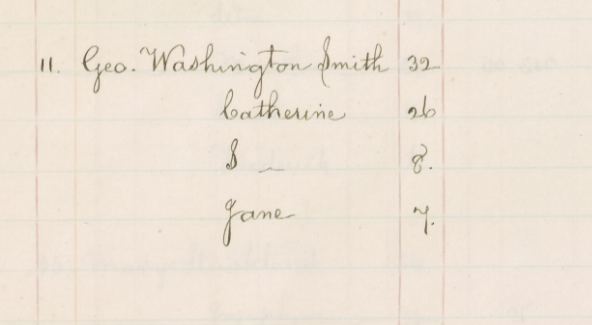 11. Geo. Washington Smith 32
Catherine 26
S — 8.
Jane 7.